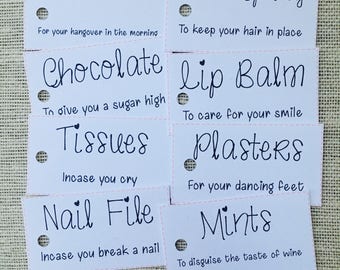 For your hangover in the morning
To keep your hair in place
Chocolate
To give you a sugar high
Lip Balm
To care for your smile
Tissues
Incase you cry
Plasters
For your dancing feet
Nail File
Incase you break a nail
Mints
To disguise the taste of wine